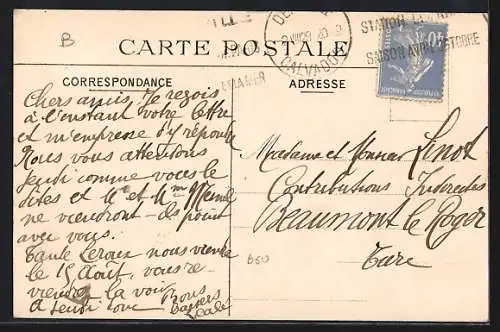 B
CARTE POSTALE
CALVADOS
STATION
SAISON AVRIL-OCTOBRE
CORRESPONDANCE
ADRESSE
Chers amis, Je reçois
à l'instant votre lettre
et m'empresse d'y répondre
Nous vous attendons
Jeudi comme vous le
dites et Mr et Mme Mesnil
ne viendront-ils point
avec vous.
Tante nous vienne
le 15 Août, vous re-
viendrez la voir.
à Jeudi Nous
Baisers
Madame et Monsieur Linot
Contributions Indirectes
Beaumont le Roger
Eure
B50